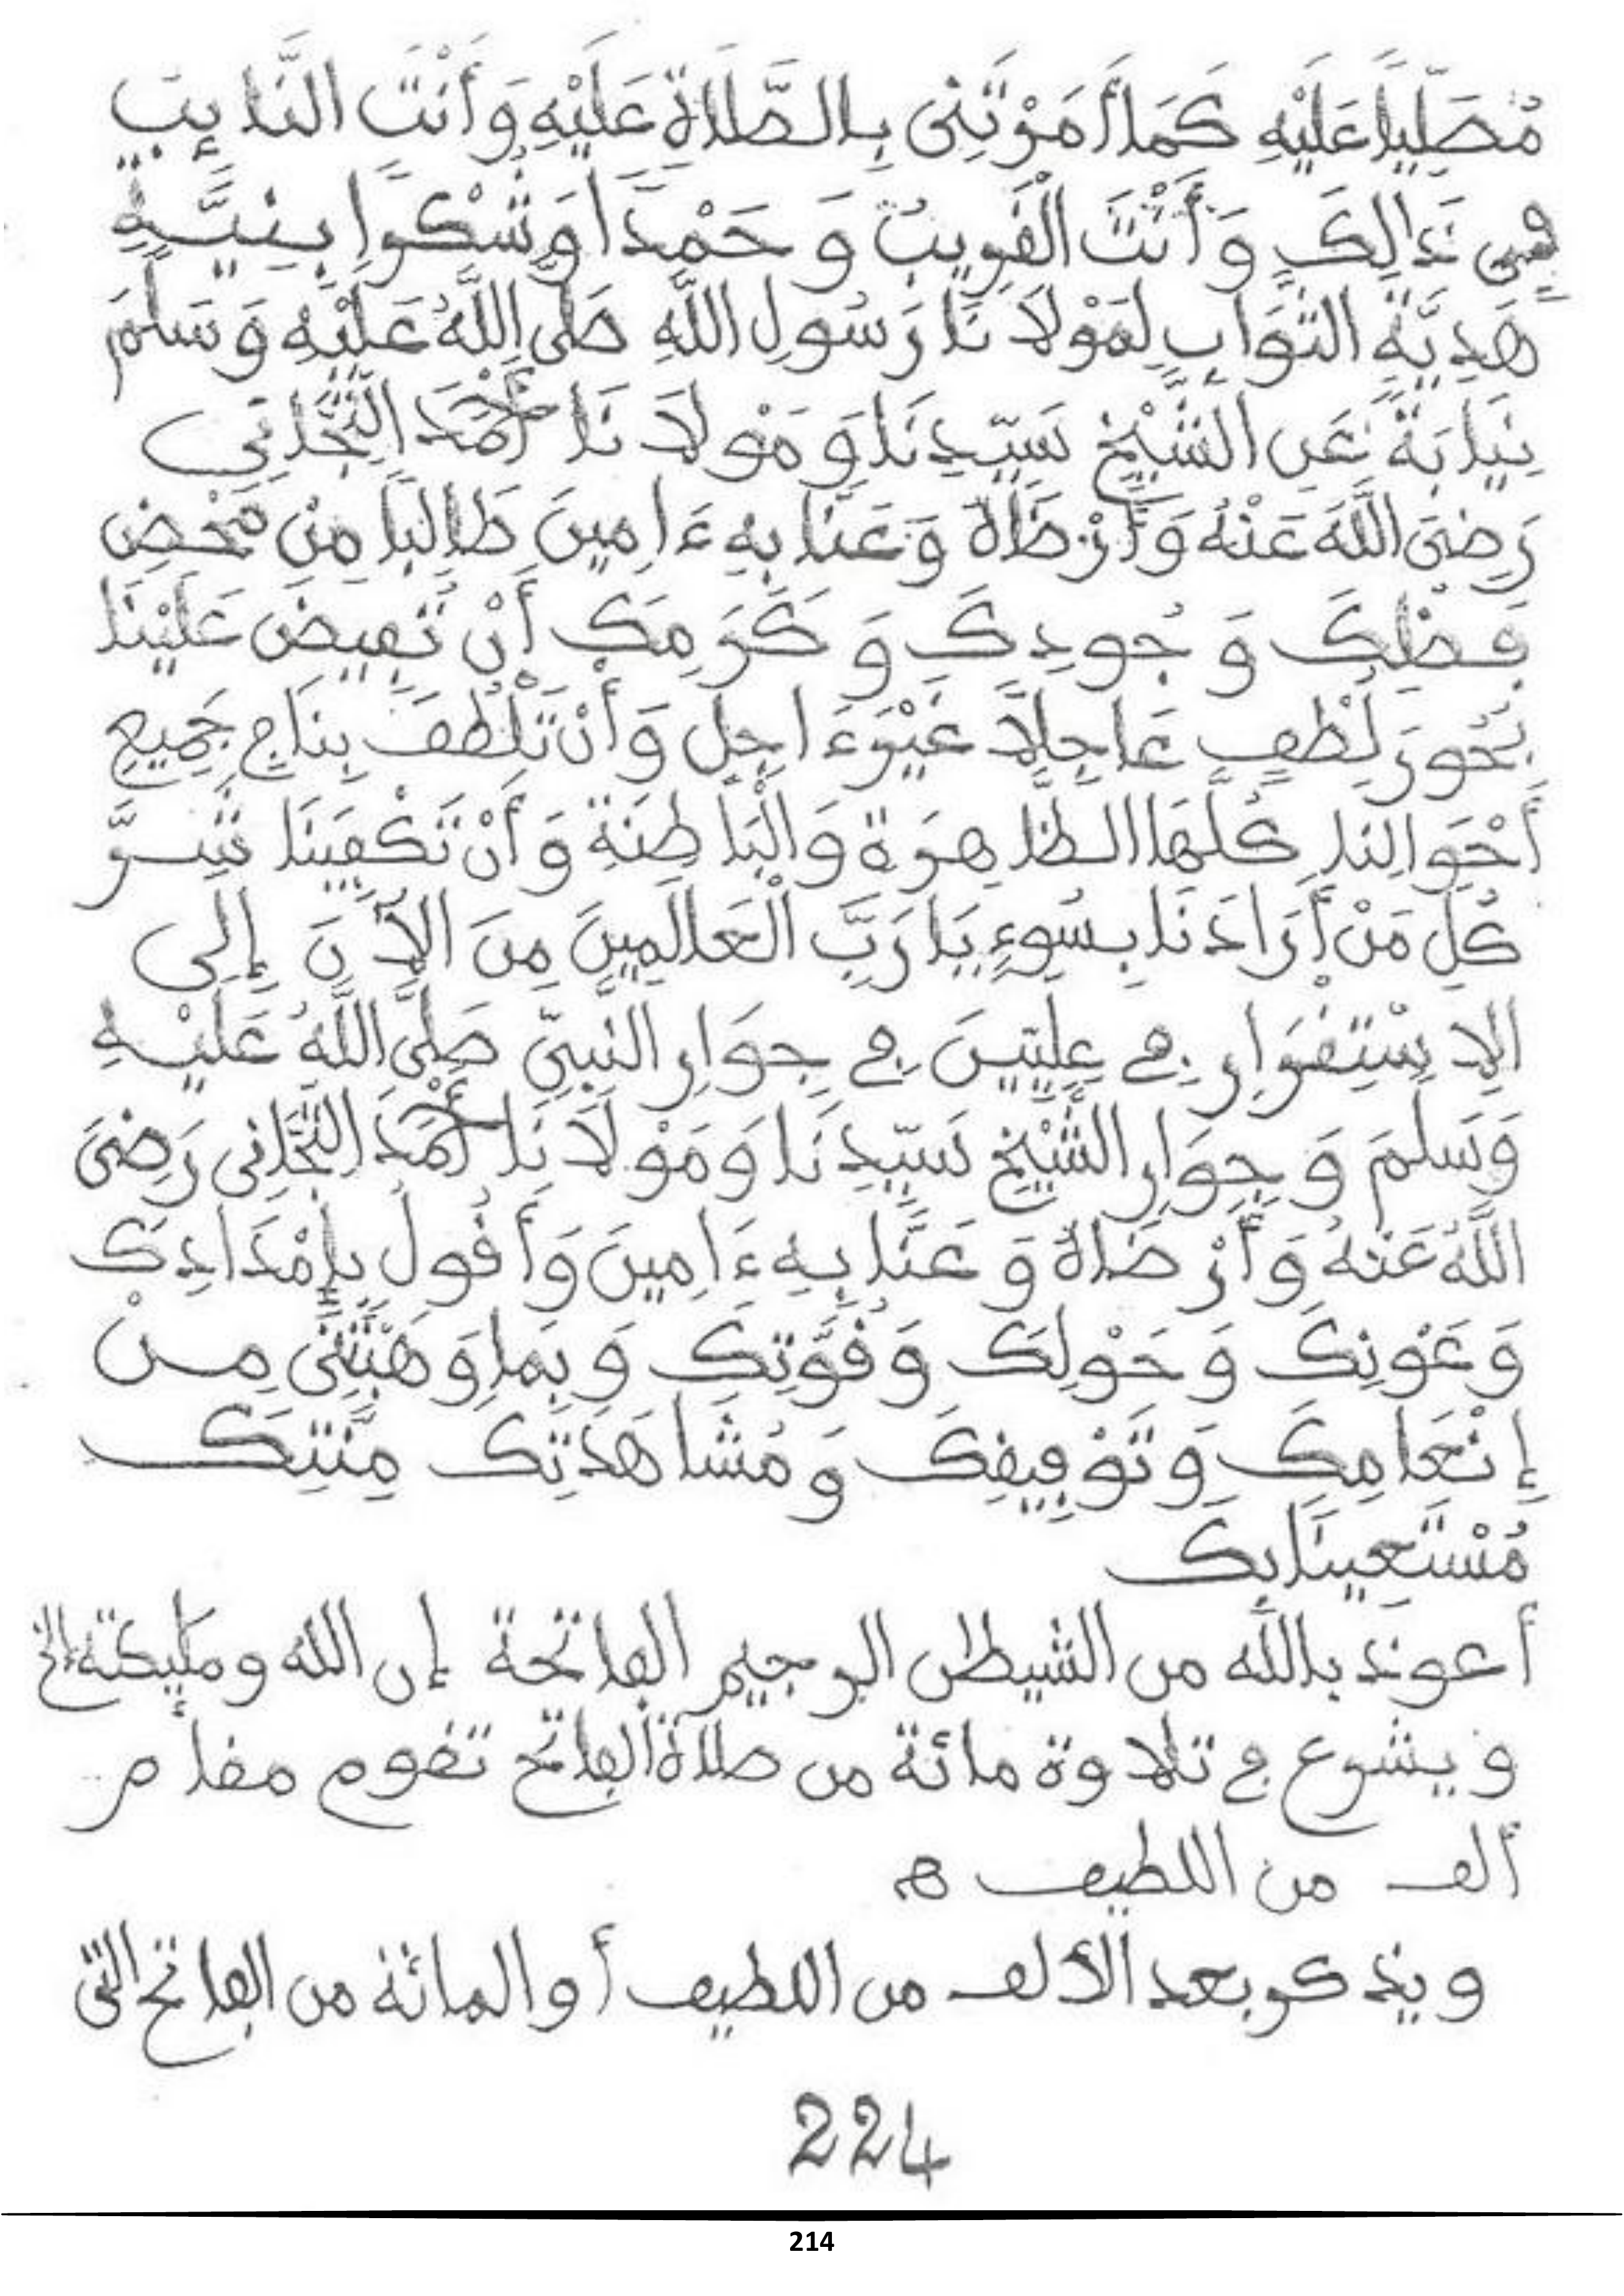 مُصَلِّيًا عَلَيْهِ كَمَا أَمَرْتَنِي بِالصَّلَاةِ عَلَيْهِ وَأَنْتَ النَّائِبُ
فِي ذَالِكَ وَأَنْتَ الْقَرِيبُ وَ حَمْدًا وَشُكْرًا بِنِيَّةِ
هَدِيَّةِ الثَّوَابِ لِمَوْلَانَا رَسُولِ اللَّهِ صَلَّى اللَّهُ عَلَيْهِ وَسَلَّمَ
نِيَابَةً عَنِ الشَّيْخِ سَيِّدِنَا وَمَوْلَانَا أَحْمَدَ التِّجَانِي
رَضِيَ اللَّهُ عَنْهُ وَأَرْضَاهُ وَعَنَّا بِهِ ءَامِينَ طَالِبًا مِنْ مَحْضِ
فَضْلِكَ وَ جُودِكَ وَ كَرَمِكَ أَنْ تُفِيضَ عَلَيْنَا
بُحُورَ لُطْفٍ عَاجِلًا غَيْرَ ءَاجِلٍ وَأَنْ تَلْطُفَ بِنَا فِي جَمِيعِ
أَحْوَالِنَا كُلِّهَا الظَّاهِرَةِ وَالْبَاطِنَةِ وَأَنْ تَكْفِيَنَا شَرَّ
كُلِّ مَنْ أَرَادَنَا بِسُوءٍ يَا رَبَّ الْعَالَمِينَ مِنَ الْآنَ إِلَى
الِاسْتِقْرَارِ فِي عِلِّيِّينَ فِي جِوَارِ النَّبِيِّ صَلَّى اللَّهُ عَلَيْهِ
وَسَلَّمَ وَ جِوَارِ الشَّيْخِ سَيِّدِنَا وَمَوْلَانَا أَحْمَدَ التِّجَانِي رَضِيَ
اللَّهُ عَنْهُ وَأَرْضَاهُ وَ عَنَّا بِهِ ءَامِينَ وَأَقُولُ بِإِمْدَادِكَ
وَعَوْنِكَ وَ حَوْلِكَ وَقُوَّتِكَ وَبِمَا وَهَبْتَنِي مِنْ
إِنْعَامِكَ وَتَوْفِيقِكَ وَمُشَاهَدَتِكَ مِنَّتِكَ
مُسْتَعِينًا بِكَ
أعوذ بالله من الشيطن الرجيم الفاتحة إن الله ومليكته الخ
ويشرع في تلاوة مائة من صلاة الفاتح تقوم مقام
ألف من اللطيف ه
ويذكر بعد الألف من اللطيف أو المائة من الفاتح التي
224
214